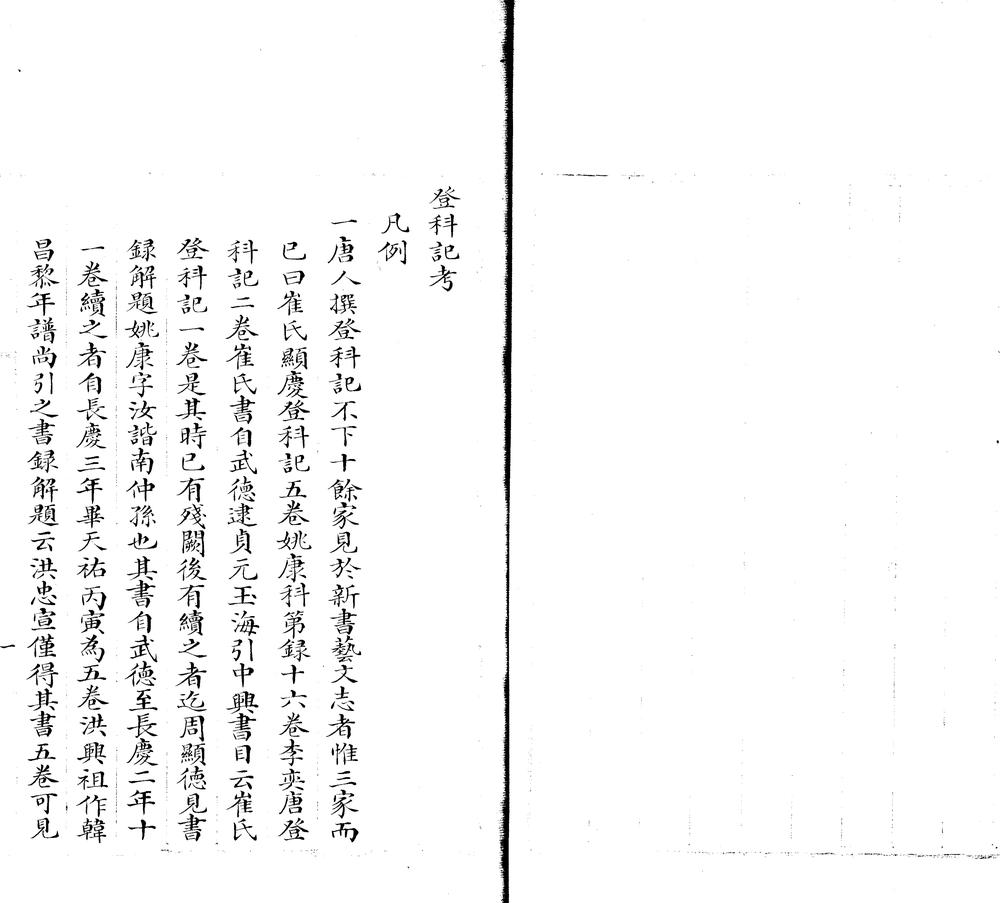 登科記考
凡例
一唐人撰登科記不下十餘家見於新書藝文志者惟三家而
已曰崔氏顯慶登科記五卷姚康科第録十六卷李奕唐登
科記二卷崔氏書自武德逮貞元玉海引中興書目云崔氏
登科記一卷是其時已有殘闕後有續之者迄周顯德見書
録解題姚康字汝諧南仲孫也其書自武德至長慶二年十
一卷續之者自長慶三年畢天祐丙寅為五卷洪興祖作韓
昌黎年譜尚引之書録解題云洪忠宣僅得其書五卷可見
一